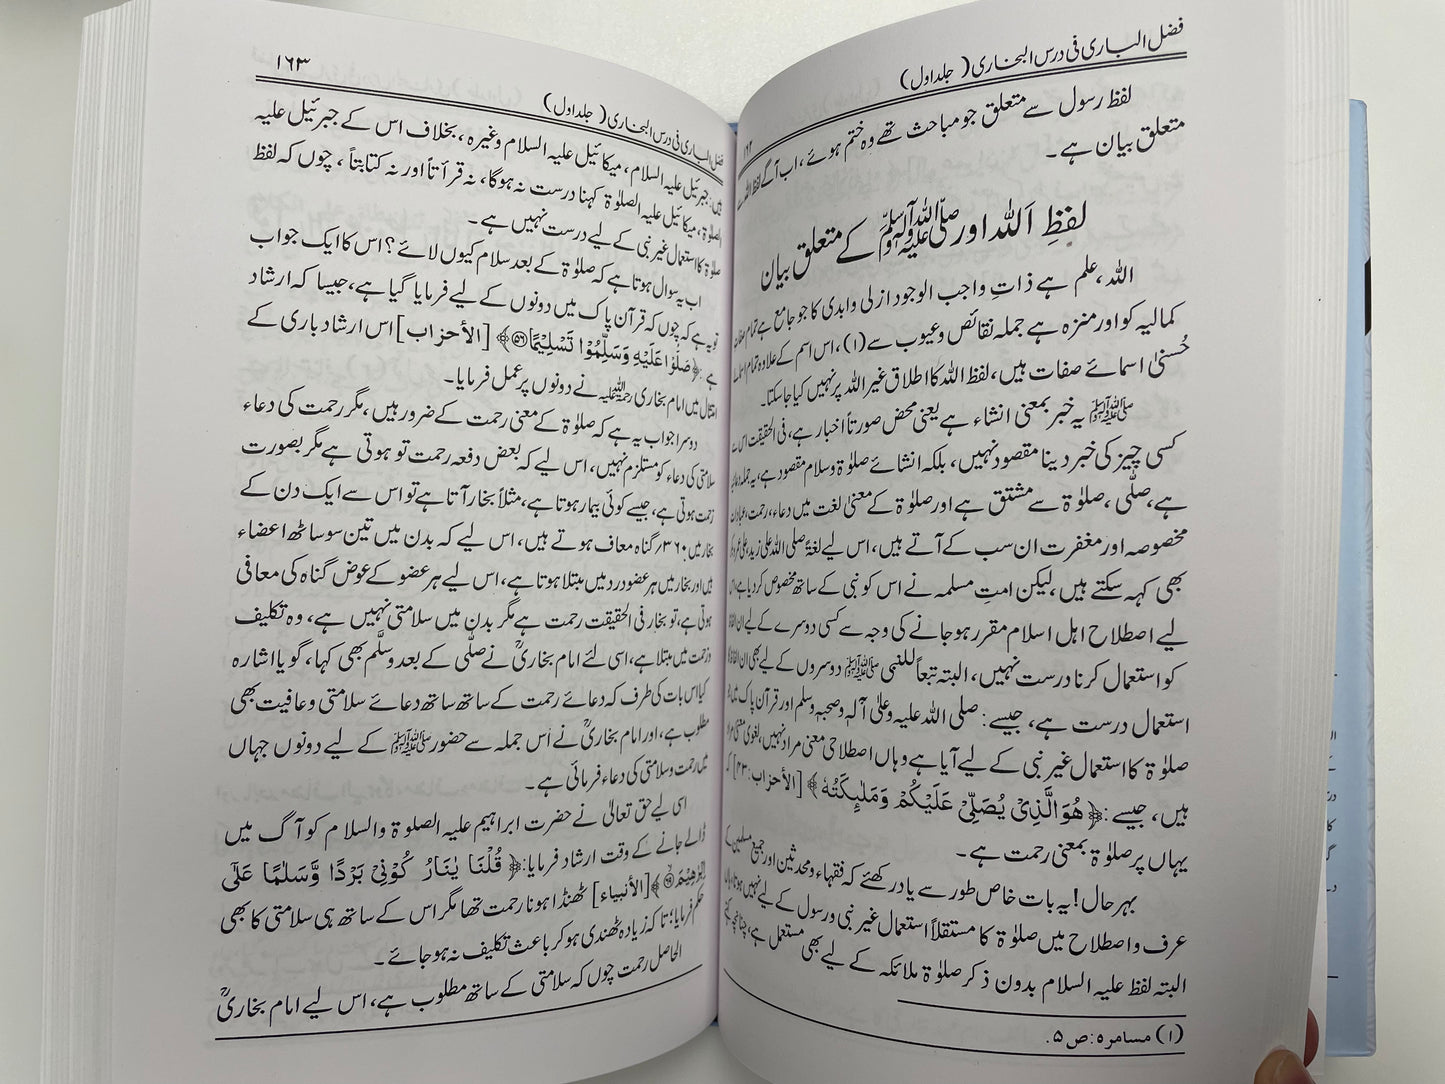 فضل الباری فی درس البخاری (جلد اول)
۱۶۲
لفظ رسول سے متعلق جو مباحث تھے وہ ختم ہوئے، اب آگے لفظ اللہ سے
متعلق بیان ہے۔
لفظِ اَللہ اور صلی اللہ علیہ وسلم کے متعلق بیان
اللہ، علم ہے ذاتِ واجب الوجود ازلی وابدی کا جو جامع ہے تمام صفات
کمالیہ کو اور منزہ ہے جملہ نقائص وعیوب سے (۱)، اس اسم کے علاوہ تمام اسمائے
حُسنیٰ اسمائے صفات ہیں، لفظ اللہ کا اطلاق غیر اللہ پر نہیں کیا جاسکتا۔
ﷺ یہ خبر بمعنی انشاء ہے یعنی محض صورتاً اخبار ہے، فی الحقیقت اس سے
کسی چیز کی خبر دینا مقصود نہیں، بلکہ انشائے صلوٰۃ وسلام مقصود ہے، یہ جملہ دعائیہ
ہے، صلّٰی، صلوٰۃ سے مشتق ہے اور صلوٰۃ کے معنیٰ لغت میں دعاء، رحمت، عبادت
مخصوصہ اور مغفرت ان سب کے آتے ہیں، اس لیے لغۃً صلی اللہ علی زید، علی عمرو
بھی کہہ سکتے ہیں، لیکن امتِ مسلمہ نے اس کو نبی کے ساتھ مخصوص کردیا ہے، اس
لیے اصطلاح اہل اسلام مقرر ہوجانے کی وجہ سے کسی دوسرے کے لیے ان الفاظ
کو استعمال کرنا درست نہیں، البتہ تبعاً للنبی ﷺ دوسروں کے لیے بھی ان الفاظ کا
استعمال درست ہے، جیسے: صلی اللہ علیہ وعلیٰ آلہ وصحبہ وسلم اور قرآن پاک میں جو
صلوٰۃ کا استعمال غیر نبی کے لیے آیا ہے وہاں اصطلاحی معنی مراد نہیں، لغوی معنیٰ مراد
ہیں، جیسے: ﴿هُوَ الَّذِيْ يُصَلِّيْ عَلَيْكُمْ وَمَلٰٓئِكَتُهٗ﴾ [الأحزاب: ۴۳] کہ
یہاں پر صلوٰۃ بمعنی رحمت ہے۔
بہر حال! یہ بات خاص طور سے یاد رکھئے کہ فقہاء ومحدثین اور جمیع مسلمین کے
عرف واصطلاح میں صلوٰۃ کا مستقلاً استعمال غیر نبی ورسول کے لیے نہیں ہوتا، ہاں
البتہ لفظ علیہ السلام بدون ذکر صلوٰۃ ملائکہ کے لیے بھی مستعمل ہے، چنانچہ کہتے
(۱) مسامرہ: ص ۵۔
فضل الباری فی درس البخاری (جلد اول)
۱۶۳
ہیں: جبرئیل علیہ السلام، میکائیل علیہ السلام وغیرہ، بخلاف اس کے جبرئیل علیہ
الصلوٰۃ، میکائیل علیہ الصلوٰۃ کہنا درست نہ ہوگا، نہ قرأتاً اور نہ کتابتاً، چوں کہ لفظ
صلوٰۃ کا استعمال غیر نبی کے لیے درست نہیں ہے۔
اب یہ سوال ہوتا ہے کہ صلوٰۃ کے بعد سلام کیوں لائے؟ اس کا ایک جواب
تو یہ ہے کہ چوں کہ قرآن پاک میں دونوں کے لیے فرمایا گیا ہے، جیسا کہ ارشاد
ہے: ﴿صَلُّوْا عَلَيْهِ وَسَلِّمُوْا تَسْلِيْمًا۝۵۶﴾ [الأحزاب] اس ارشاد باری کے
امتثال میں امام بخاری رحمۃ اللہ علیہ نے دونوں پر عمل فرمایا۔
دوسرا جواب یہ ہے کہ صلوٰۃ کے معنی رحمت کے ضرور ہیں، مگر رحمت کی دعاء
سلامتی کی دعاء کو مستلزم نہیں، اس لیے کہ بعض دفعہ رحمت تو ہوتی ہے مگر بصورت
زحمت ہوتی ہے، جیسے کوئی بیمار ہوتا ہے، مثلاً بخار آتا ہے تو اس سے ایک دن کے
بخار میں ۳۶۰ گناہ معاف ہوتے ہیں، اس لیے کہ بدن میں تین سو ساٹھ اعضاء
ہیں اور بخار میں ہر عضو درد میں مبتلا ہوتا ہے، اس لیے ہر عضو کے عوض گناہ کی معافی
ہوتی ہے، تو بخار فی الحقیقت رحمت ہے مگر بدن میں سلامتی نہیں ہے، وہ تکلیف
وزحمت میں مبتلا ہے، اسی لئے امام بخاریؒ نے صلّٰی کے بعد وسلَّم بھی کہا، گویا اشارہ
کیا اس بات کی طرف کہ دعائے رحمت کے ساتھ ساتھ دعائے سلامتی وعافیت بھی
مطلوب ہے، اور امام بخاریؒ نے اس جملہ سے حضور ﷺ کے لیے دونوں جہاں
میں رحمت وسلامتی کی دعاء فرمائی ہے۔
اسی لیے حق تعالیٰ نے حضرت ابراہیم علیہ الصلوۃ والسلام کو آگ میں
ڈالے جانے کے وقت ارشاد فرمایا: ﴿قُلْنَا يٰنَارُ كُوْنِيْ بَرْدًا وَّسَلٰمًا عَلٰٓى
اِبْرٰهِيْمَ۝۶۹﴾ [الأنبياء] ٹھنڈا ہونا رحمت تھا مگر اس کے ساتھ ہی سلامتی کا بھی
حکم فرمایا؛ تاکہ زیادہ ٹھنڈی ہوکر باعث تکلیف نہ ہوجائے۔
الحاصل رحمت چوں کہ سلامتی کے ساتھ مطلوب ہے، اس لیے امام بخاریؒ